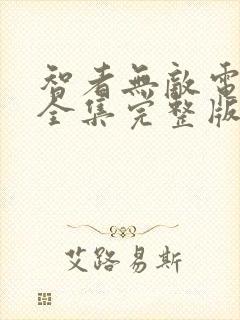 智者無敵電
全集完整版
艾路易斯